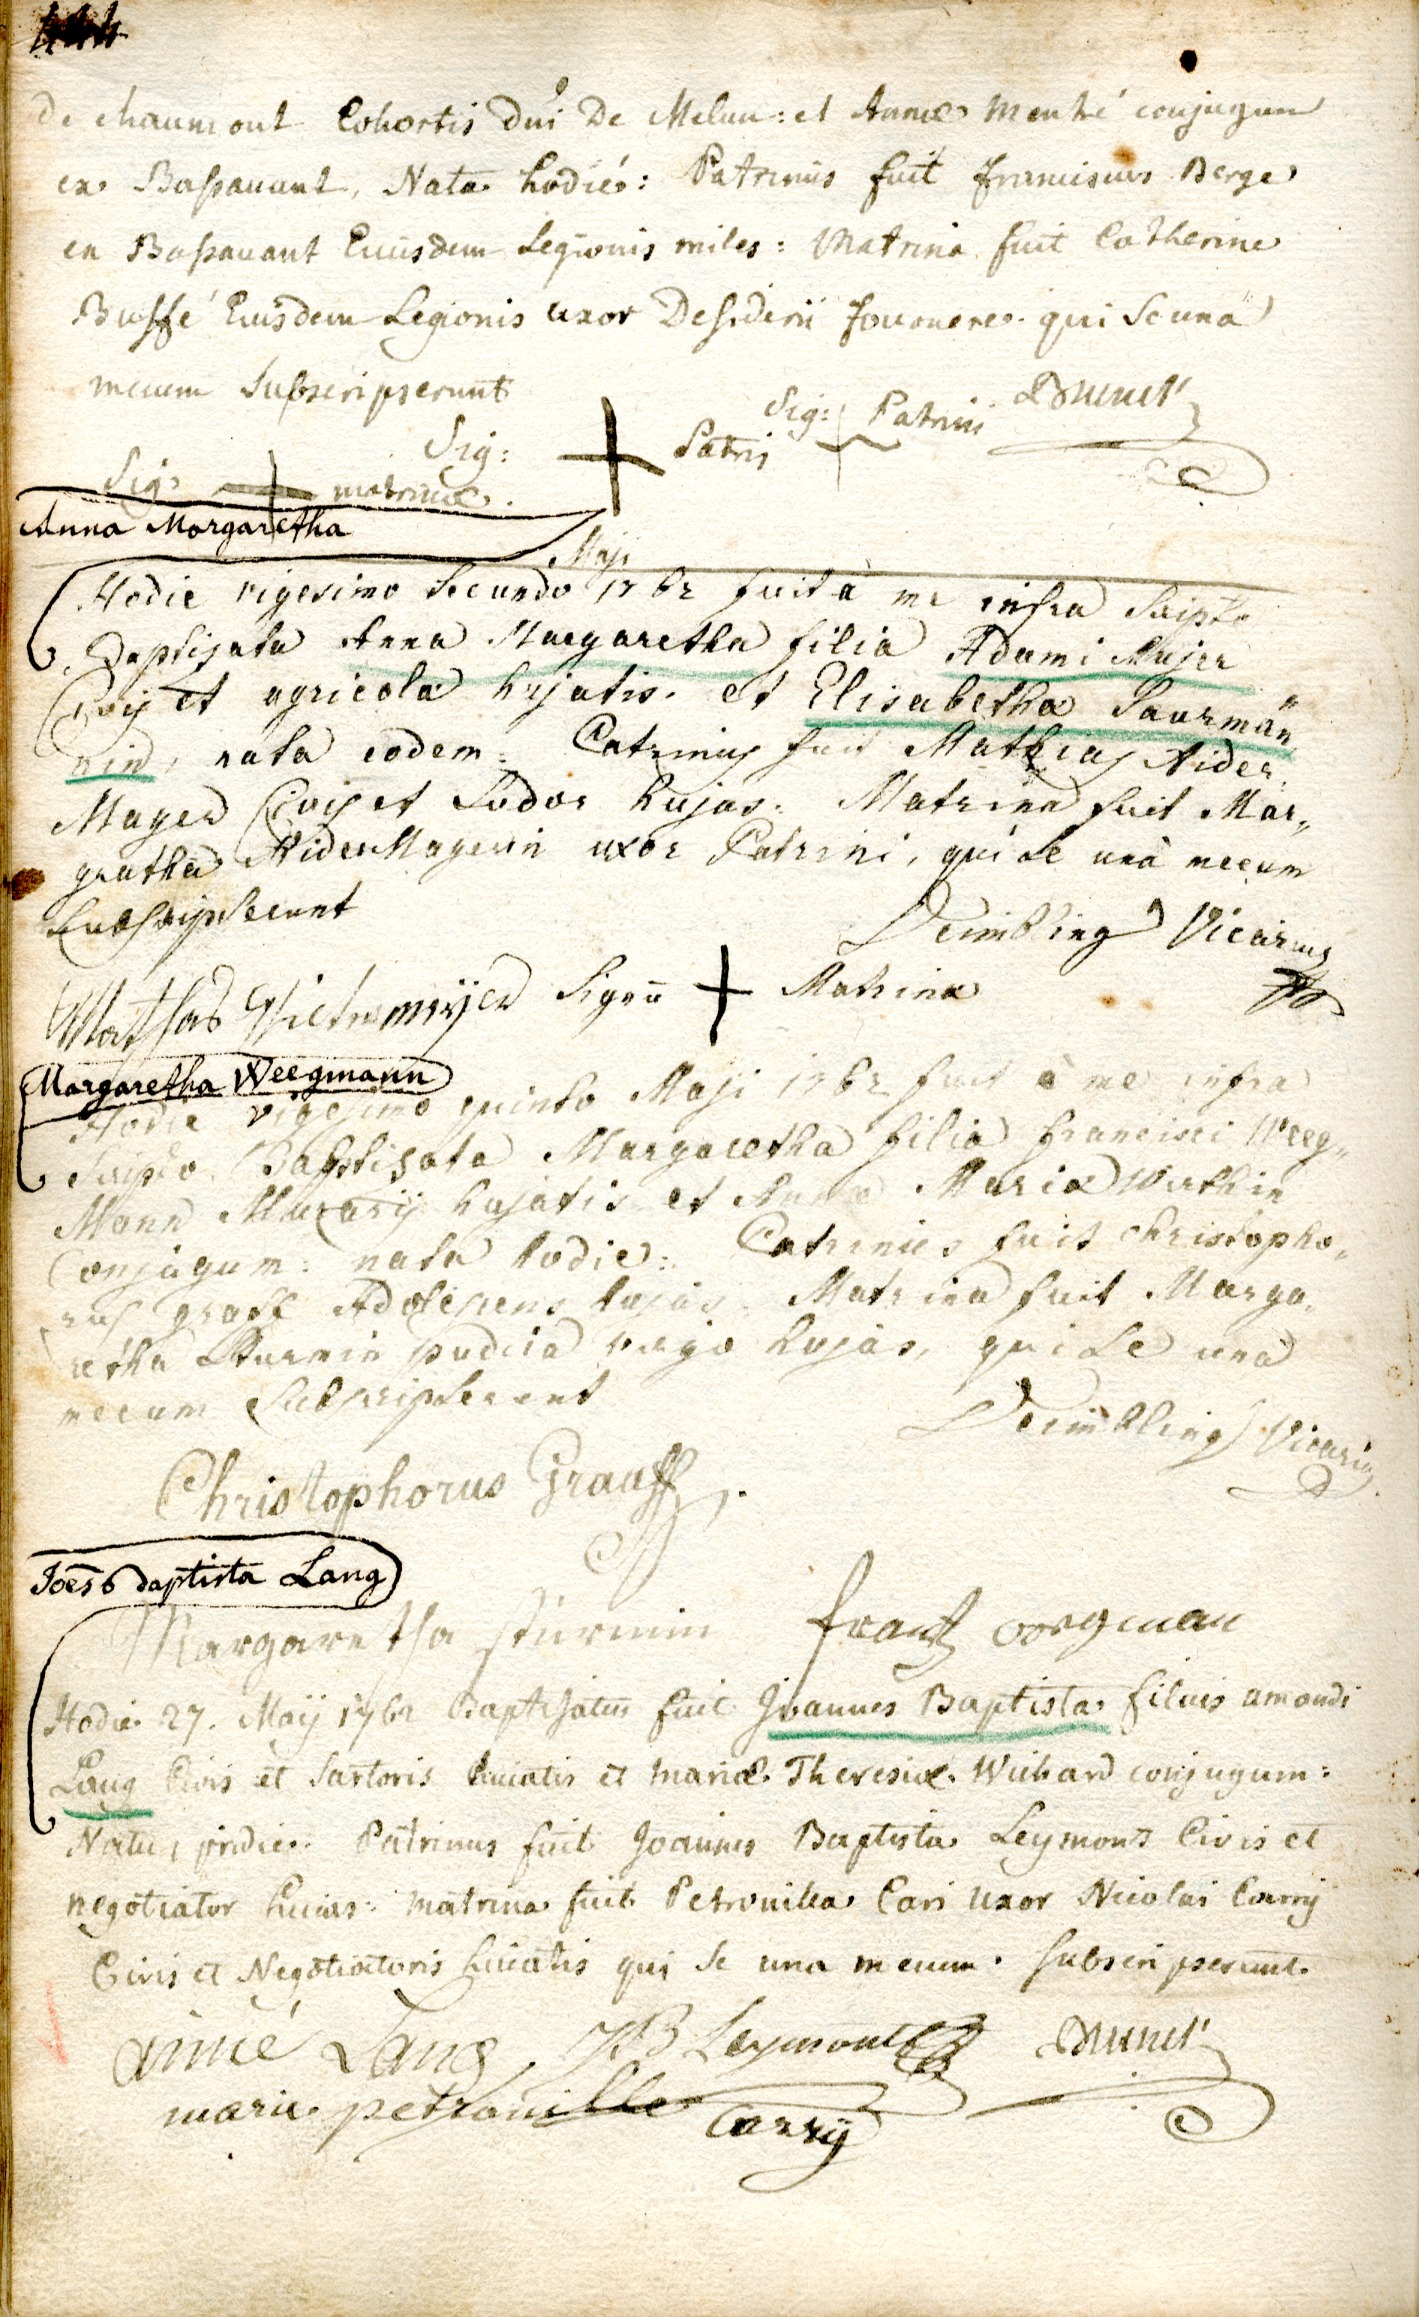 de chaumont Cohortis Dni De Melun: et Annæ Menhé conjugum
ex Bassavant, Nata hodie: Patrinus fuit Franciscus Berge
ex Bassavant Eiusdem Legionis miles: Matrina fuit Catherine
Bussé Eiusdem Legionis uxor Desiderii Fournere qui se una
mecum Subscripserunt
Sig: Patrini Brunet
Sig: + Patris
Sig: + matrinæ.
Anna Margaretha
Maji
Hodie vigesimo secundo 1762 fuit à me infra scripto
Baptisata Anna Margaretha filia Adami Majer
Civis et agricola hujatis. et Elisabetha Paurmän
nin, nata eodem: Patrinus fuit Mathias Wider
Mayer Civis et Sudor hujas. Matrina fuit Mar„
gratha WiderMayerin uxor Patrini, qui se unà mecum
subscripserunt
Deimbling Vicarius
Signũ + Matrinæ
Margaretha Weegmann
Hodie vigesimo quinto Maji 1762 fuit à me infra
Scripto Baptisata Margaretha filia Francisci Weeg„
Mann Murarij hujatis et Anna Maria Wirthin
Conjugum: nata hodie: Patrinus fuit Christopho„
rus graff Adolescens hujas. Matrina fuit Marga„
retha Sturmin pudica virgo hujas, qui se unà
mecum Subscripserunt
Deimbling Vicarius
Christophorus Grauff
Joes baptista Lang
Margaretha sturmin frantz
Hodie 27. Maij 1762 Baptisatus fuit Joannes Baptista filius amandi
Lang Civis et Sartoris huiatis et mariæ Theresiæ Wichard conjugum:
Natus pridie: Patrinus fuit Joannes Baptista Leymont Civis et
negotiator huias: matrina fuit Petronilla Cari uxor Nicolai Carry
Civis et Negotiatoris huiatis qui se una mecum subscripserunt.
aimé Lang JB Leymont Brunet
marie petronille Carry